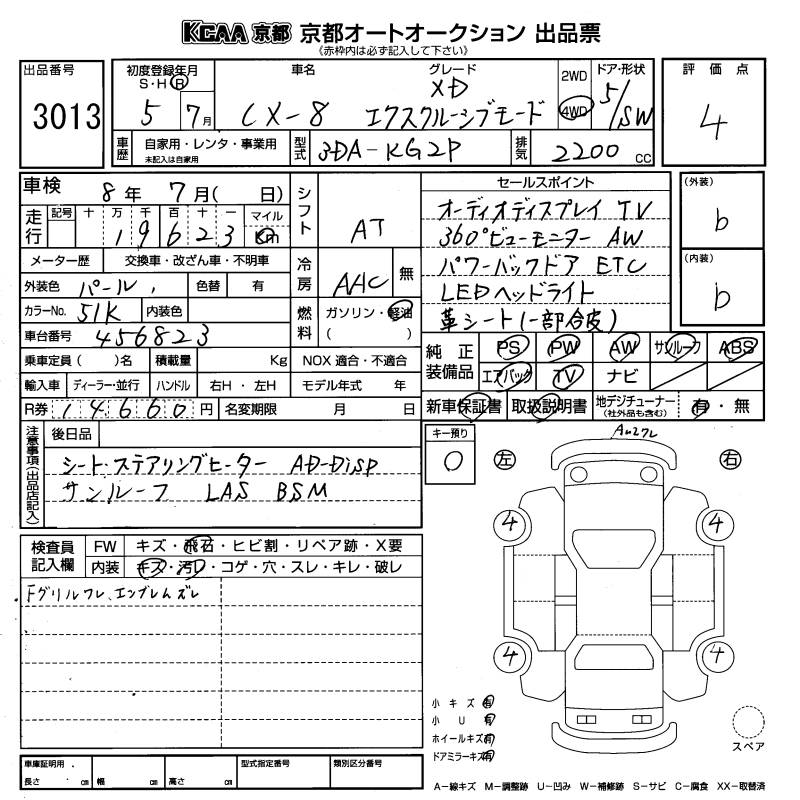 KCAA 京都 京都オートオークション 出品票
《赤枠内は必ず記入して下さい》
出品番号 3013
初度登録年月 S・H・R 5年 7月
車名 CX-8
グレード XD エクスクルーシブモード
2WD 4WD
ドア・形状 5/SW
評価点 4
車歴 自家用・レンタ・事業用 未記入は自家用
型式 3DA-KG2P
排気 2200 cc
車検 8年 7月( 日)
走行 記号 十 万 千 百 十 一 マイル Km
19623
メーター歴 交換車・改ざん車・不明車
外装色 パール, 色替 有
カラーNo. 51K 内装色
車台番号 456823
乗車定員( )名 積載量 Kg NOX 適合・不適合
輸入車 ディーラー・並行 ハンドル 右H・左H モデル年式 年
R券 14660円 名変期限 月 日
シフト AT
冷房 AAC 無
燃料 ガソリン・軽油 ( )
セールスポイント
オーディオディスプレイ TV
360°ビューモニター AW
パワーバックドア ETC
LEDヘッドライト
革シート(一部合皮)
(外装) b
(内装) b
純正装備品 PS PW AW サンルーフ ABS
エアバック TV ナビ
新車保証書 取扱説明書 地デジチューナー (社外品も含む) 有・無
注意事項(出品店記入) 後日品
シート・ステアリングヒーター AD-Disp
サンルーフ LAS BSM
キー預り 0
検査員記入欄 FW キズ・飛石・ヒビ割・リペア跡・X要
内装 キズ・汚レ・コゲ・穴・スレ・キレ・破レ
Fグリルワレ、エンブレムズレ
左 右
4 4
4 4
小キズ 有
小U 有
ホイールキズ 有
ドアミラーキズ 有
スペア
車庫証明用 長さ cm 幅 cm 高さ cm
型式指定番号 類別区分番号
A-線キズ M-調整跡 U-凹み W-補修跡 S-サビ C-腐食 XX-取替済